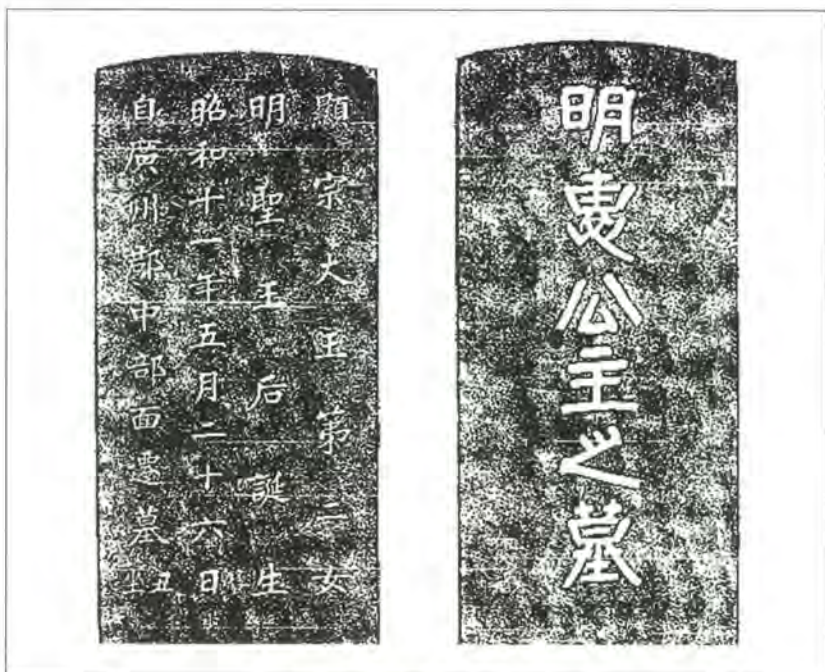 明惠公主之墓
顯宗大王第二女
明聖王后誕生
昭和十一年五月二十六日
自廣州郡中部面遷墓丑坐